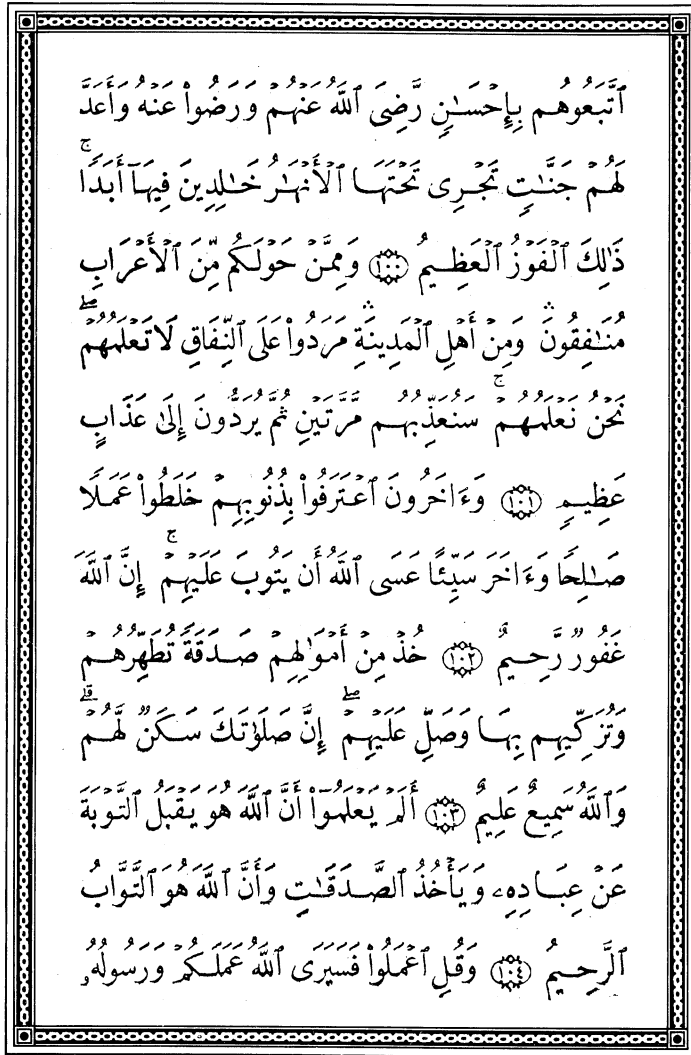 ٱتَّبَعُوهُم بِإِحۡسَٰنٖ رَّضِيَ ٱللَّهُ عَنۡهُمۡ وَرَضُواْ عَنۡهُ وَأَعَدَّ
لَهُمۡ جَنَّٰتٖ تَجۡرِي تَحۡتَهَا ٱلۡأَنۡهَٰرُ خَٰلِدِينَ فِيهَآ أَبَدٗاۚ
ذَٰلِكَ ٱلۡفَوۡزُ ٱلۡعَظِيمُ ١٠٠ وَمِمَّنۡ حَوۡلَكُم مِّنَ ٱلۡأَعۡرَابِ
مُنَٰفِقُونَۛ وَمِنۡ أَهۡلِ ٱلۡمَدِينَةِۛ مَرَدُواْ عَلَى ٱلنِّفَاقِ لَا تَعۡلَمُهُمۡۖ
نَحۡنُ نَعۡلَمُهُمۡۚ سَنُعَذِّبُهُم مَّرَّتَيۡنِ ثُمَّ يُرَدُّونَ إِلَىٰ عَذَابٍ
عَظِيمٖ ١٠١ وَءَاخَرُونَ ٱعۡتَرَفُواْ بِذُنُوبِهِمۡ خَلَطُواْ عَمَلٗا
صَٰلِحٗا وَءَاخَرَ سَيِّئًا عَسَى ٱللَّهُ أَن يَتُوبَ عَلَيۡهِمۡۚ إِنَّ ٱللَّهَ
غَفُورٞ رَّحِيمٌ ١٠٢ خُذۡ مِنۡ أَمۡوَٰلِهِمۡ صَدَقَةٗ تُطَهِّرُهُمۡ
وَتُزَكِّيهِم بِهَا وَصَلِّ عَلَيۡهِمۡۖ إِنَّ صَلَوٰتَكَ سَكَنٞ لَّهُمۡۗ
وَٱللَّهُ سَمِيعٌ عَلِيمٌ ١٠٣ أَلَمۡ يَعۡلَمُوٓاْ أَنَّ ٱللَّهَ هُوَ يَقۡبَلُ ٱلتَّوۡبَةَ
عَنۡ عِبَادِهِۦ وَيَأۡخُذُ ٱلصَّدَقَٰتِ وَأَنَّ ٱللَّهَ هُوَ ٱلتَّوَّابُ
ٱلرَّحِيمُ ١٠٤ وَقُلِ ٱعۡمَلُواْ فَسَيَرَى ٱللَّهُ عَمَلَكُمۡ وَرَسُولُهُۥ